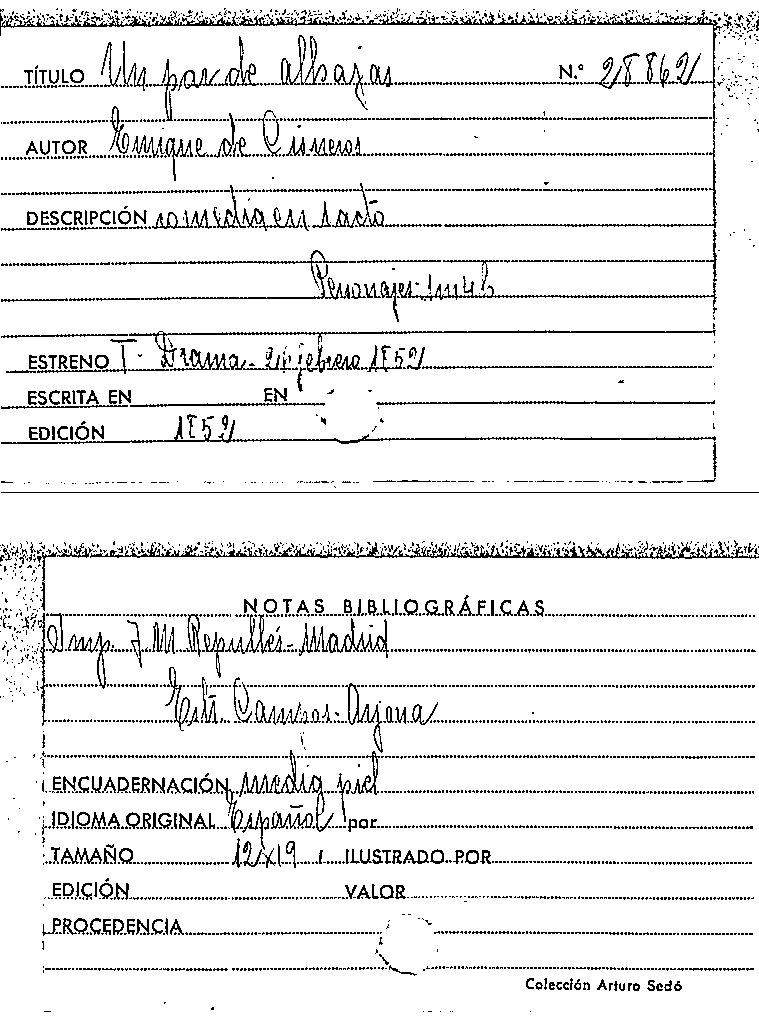 TÍTULO Un par de alhajas N.º 28862
AUTOR Enrique de Cisneros
DESCRIPCIÓN comedia en 1 acto
Personajes: 1m 4h
ESTRENO T. Drama - 24 febrero 1852
ESCRITA EN EN
EDICIÓN 1852
NOTAS BIBLIOGRÁFICAS
Imp. J. M. Repullés - Madrid
Estr. Campos - Arjona
ENCUADERNACIÓN media piel
IDIOMA ORIGINAL Español por
TAMAÑO 12x19 ILUSTRADO POR
EDICIÓN VALOR
PROCEDENCIA
Colección Arturo Sedó